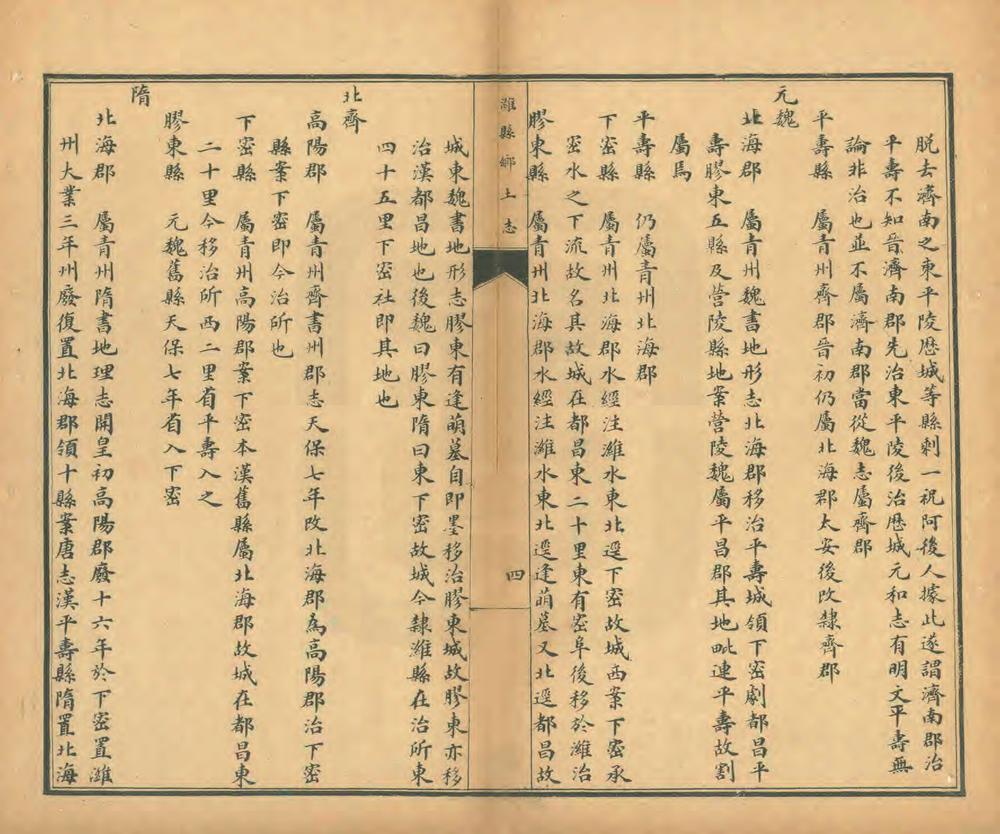 脫去濟南之東平陵歷城等縣剩一祝阿後人據此遂謂濟南郡治
平壽不知晉濟南郡先治東平陵後治歷城元和志有明文平壽無
論非治也並不屬濟南郡當從魏志屬齊郡
平壽縣　屬青州齊郡晉初仍屬北海郡太安後改隸齊郡
元魏
北海郡　屬青州魏書地形志北海郡移治平壽城領下密劇都昌平
壽膠東五縣及營陵縣地案營陵魏屬平昌郡其地毗連平壽故割
屬焉
平壽縣　仍屬青州北海郡
下密縣　屬青州北海郡水經注濰水東北逕下密故城西案下密承
密水之下流故名其故城在都昌東二十里東有密阜後移於濰治
膠東縣　屬青州北海郡水經注濰水東北逕逄萌墓又北逕都昌故
濰縣鄉土志
四
城東魏書地形志膠東有逄萌墓自即墨移治膠東城故膠東亦移
治漢都昌地也後魏曰膠東隋曰東下密故城今隸濰縣在治所東
四十五里下密社即其地也
北齊
高陽郡　屬青州齊書州郡志天保七年改北海郡為高陽郡治下密
縣案下密即今治所也
下密縣　屬青州高陽郡案下密本漢舊縣屬北海郡故城在都昌東
二十里今移治所西二里有平壽入之
膠東縣　元魏舊縣天保七年省入下密
隋
北海郡　屬青州隋書地理志開皇初高陽郡廢十六年於下密置濰
州大業三年州廢復置北海郡領十縣案唐志漢平壽縣隋置北海